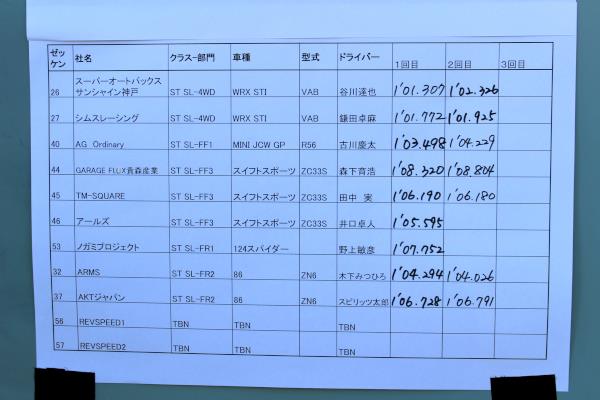 ゼッケン 社名 クラス-部門 車種 型式 ドライバー 1回目 2回目 3回目
26 スーパーオートバックス サンシャイン神戸 ST SL-4WD WRX STI VAB 谷川達也 1'01.307 1'02.326
27 シムスレーシング ST SL-4WD WRX STI VAB 鎌田卓麻 1'01.772 1'01.925
40 AG Ordinary ST SL-FF1 MINI JCW GP R56 古川慶太 1'03.498 1'04.229
44 GARAGE FLUX貴森産業 ST SL-FF3 スイフトスポーツ ZC33S 森下育浩 1'08.320 1'08.804
45 TM-SQUARE ST SL-FF3 スイフトスポーツ ZC33S 田中 実 1'06.190 1'06.180
46 アールズ ST SL-FF3 スイフトスポーツ ZC33S 井口卓人 1'05.595
53 ノガミプロジェクト ST SL-FR1 124スパイダー 野上敏彦 1'07.752
32 ARMS ST SL-FR2 86 ZN6 木下みつひろ 1'04.294 1'04.026
37 AKTジャパン ST SL-FR2 86 ZN6 スピリッツ太郎 1'06.728 1'06.791
56 REVSPEED1 TBN TBN TBN
57 REVSPEED2 TBN TBN TBN